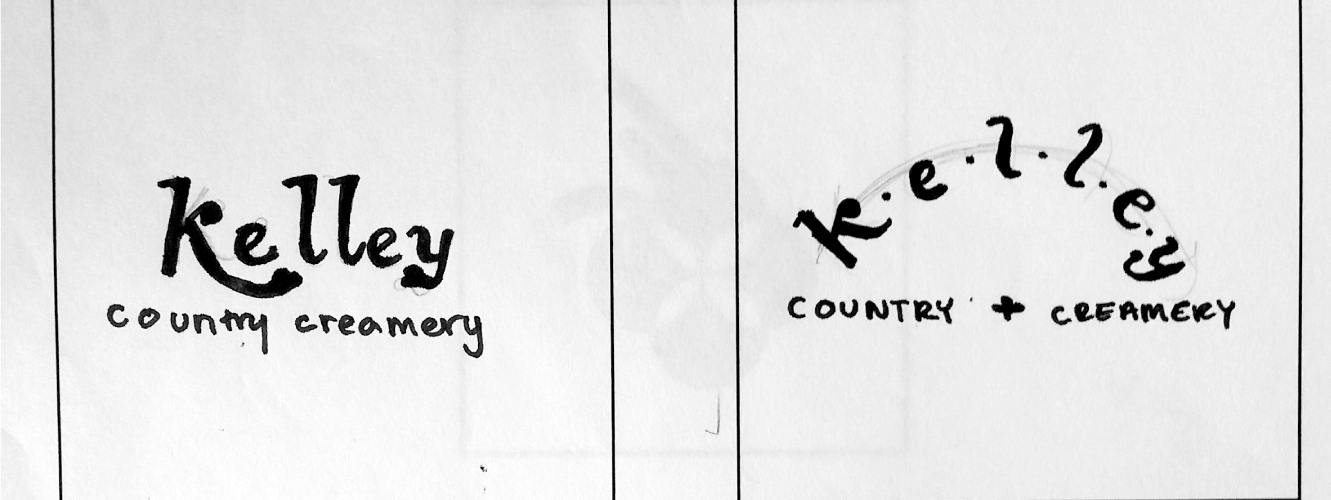 Kelley
country creamery
K.e.l.l.e.y
COUNTRY + CREAMERY